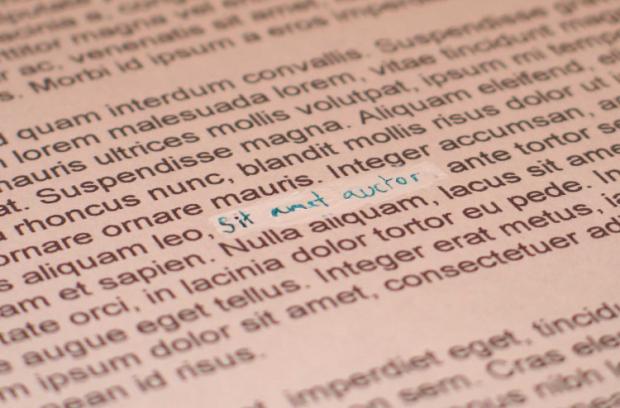 s. Morbi id ipsum a eros imper
quam interdum convallis. Suspendisse
lorem malesuada lorem, vitae tincidunt
mauris ultrices mollis volutpat, ipsum mi
at. Suspendisse magna. Aliquam eleifend,
rhoncus nunc, blandit mollis risus dolor ut
ornare ornare mauris. Integer accumsan,
s aliquam leo, Sit amet auctor ante tortor
am et sapien. Nulla aliquam, lacus sit ame
tate orci, in lacinia dolor tortor eu pede. In
e augue eget tellus. Integer erat metus,
m ipsum dolor sit amet, consectetuer ad
ean id risus.
imperdiet eget, tincid
sem. Cras